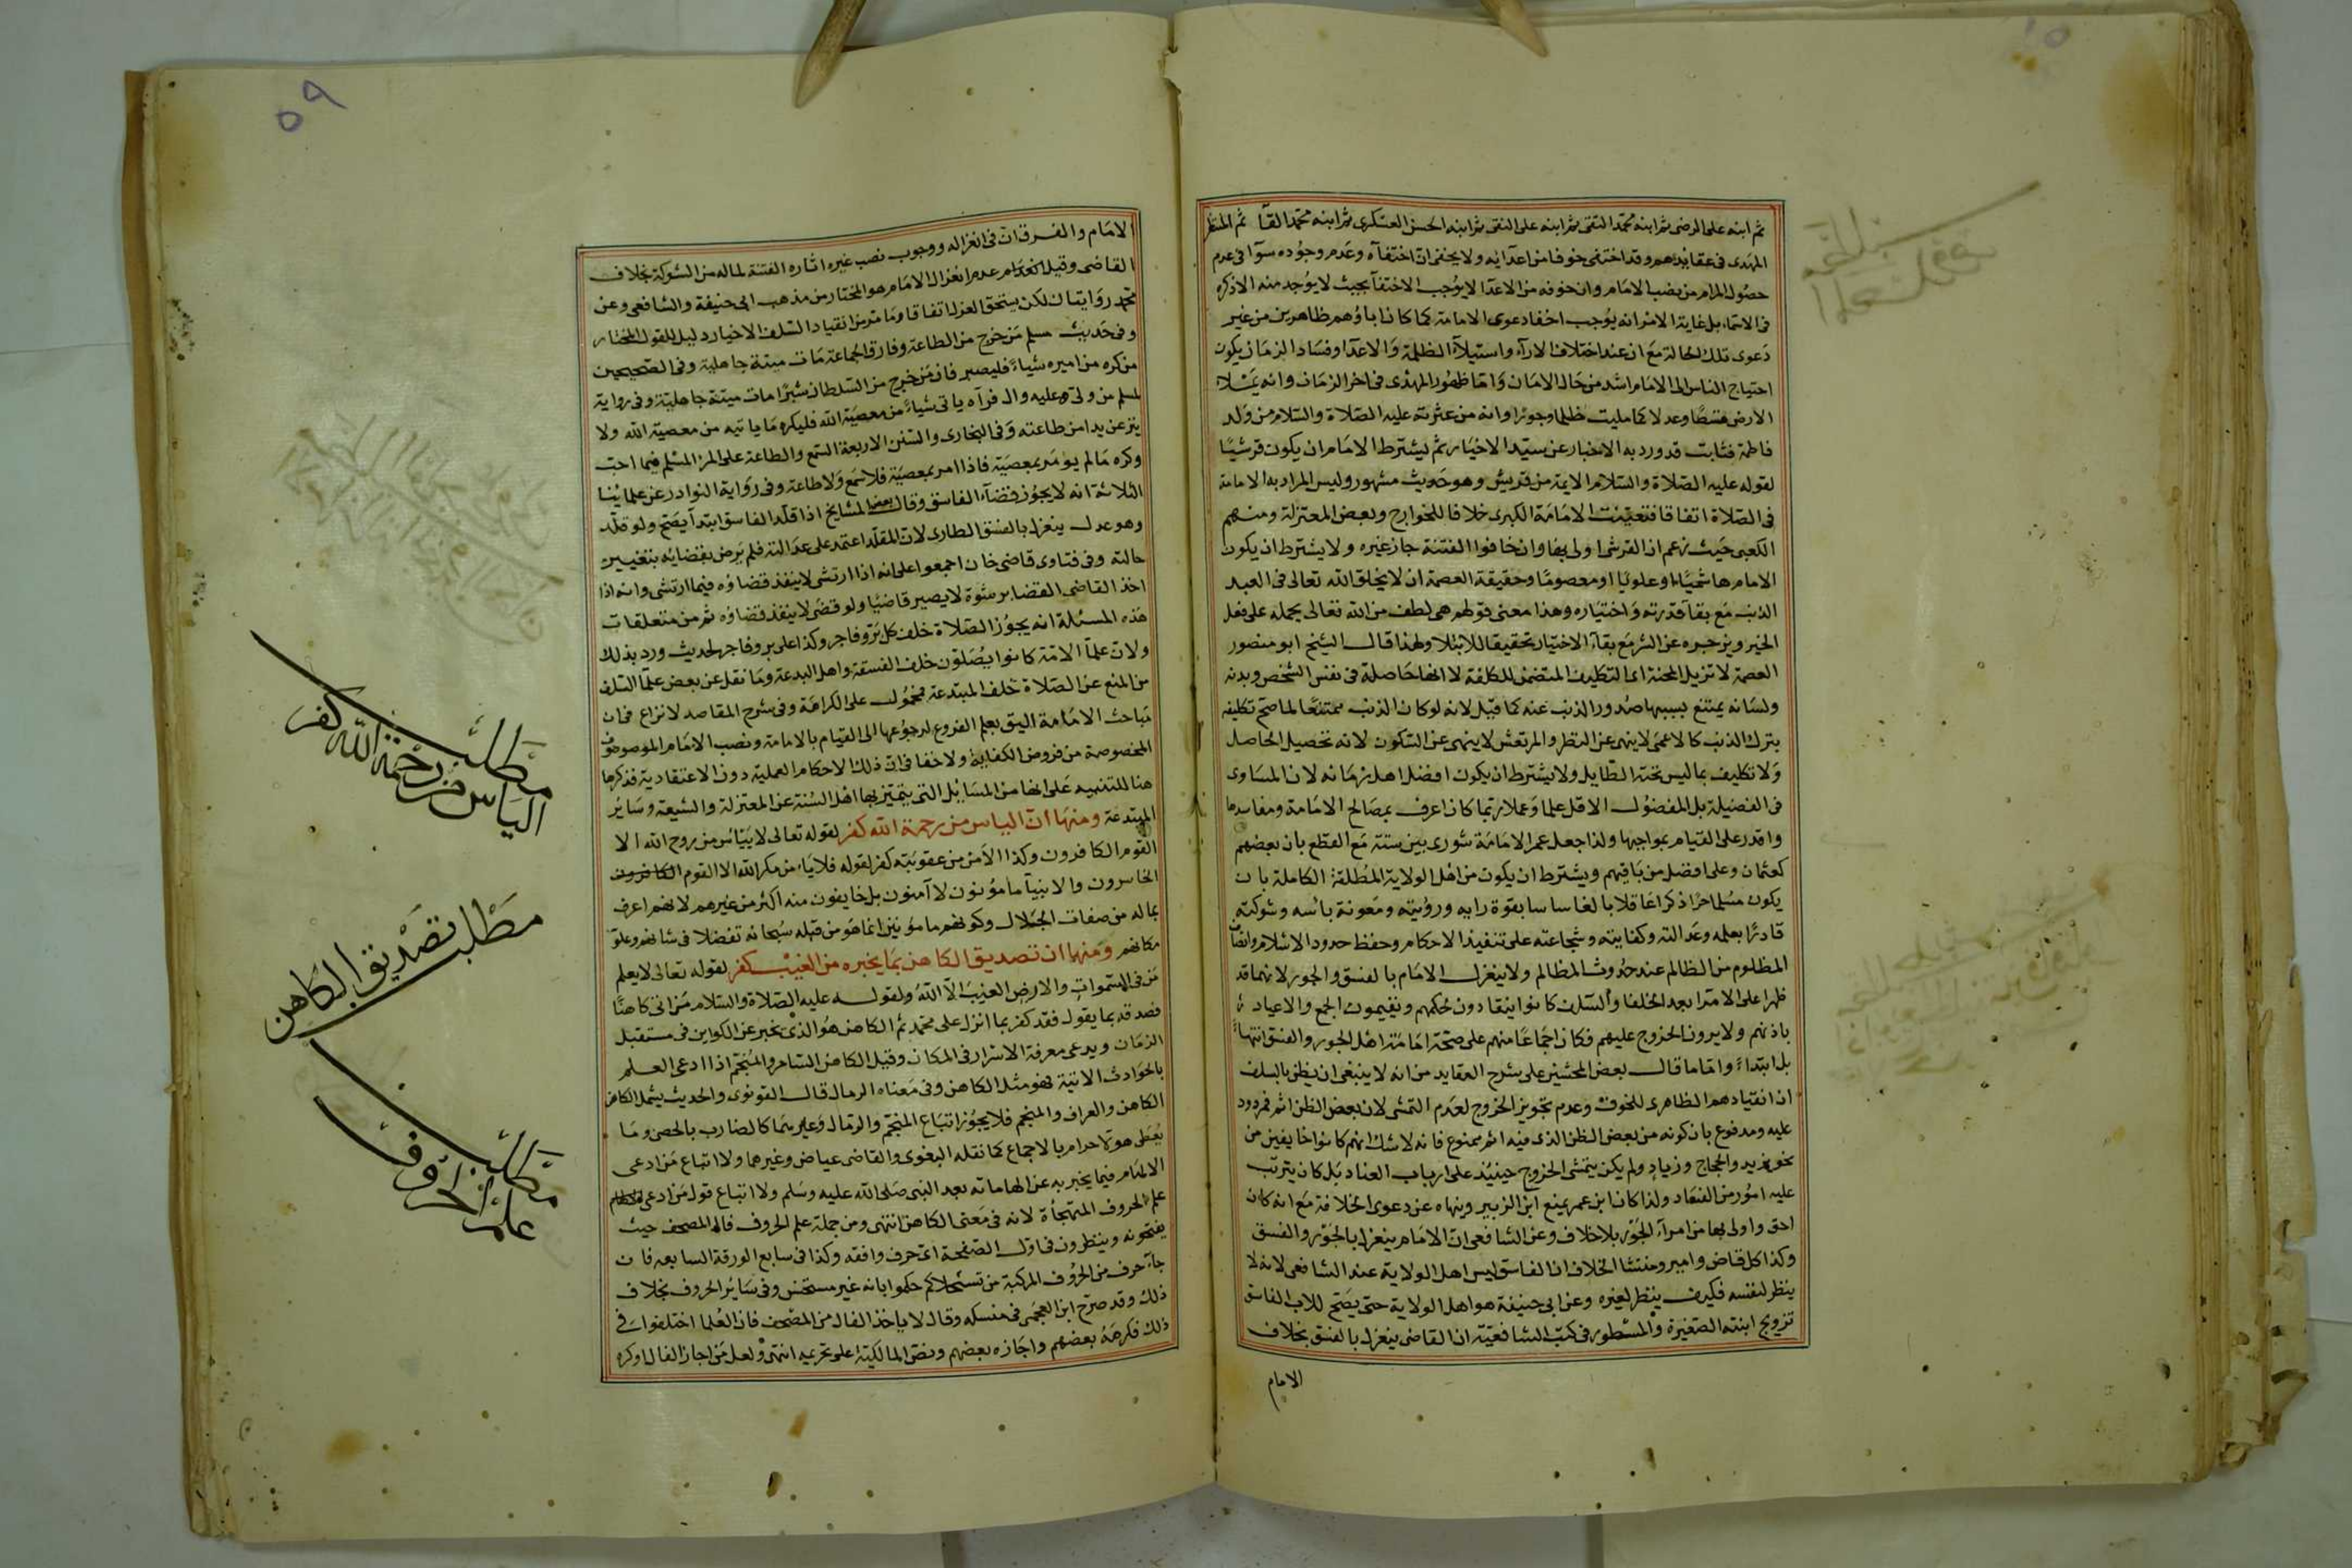 ثم ابنه على الرضى ثم ابنه محمد التقى ثم ابنه على النقى ثم ابنه الحسن العسكرى ثم ابنه محمد القآ ثم المنتظر
المهدى فى عقايدهم وقد اختفى خوفا من اعدآيه ولا يخفى ان اختفآه وعدم وجوده سوآ فى عدم
حصول المرام من نصب الامام وان خوفه من الاعدا لا يوجب الاختفآ بحيث لا يوجد منه الا ذكره
فى الاسماء بل غاية الامر انه يوجب اخفا دعوى الامامة كما كان اباؤهم ظاهرين من غير
دعوى تلك الحالة مع ان عند اختلاف الارآء واستيلآء الظلمة والاعدا وفساد الزمان يكون
احتياج الناس الى الامام اشد من حال الامان واما ظهور المهدى فى اخر الزمان وانه يملاء
الارض قسطا وعدلا كما مليت ظلما وجورا وانه من عترته عليه الصلاة والسلام من ولد
فاطمة فثابت قد ورد به الاخبار عن سيد الاخيار ثم يشترط الامام ان يكون قرشيا
لقوله عليه الصلاة والسلام الايمة من قريش وهو حديث مشهور وليس المراد به الامامة
فى الصلاة اتفاقا فتعينت الامامة الكبرى خلافا للخوارج وبعض المعتزلة ومنهم
الكعبى حيث زعم ان القرشى اولى بها وان خافوا الفتنة جاز غيره ولا يشترط ان يكون
الامام هاشميا او علويا او معصوما وحقيقة العصمة ان لا يخلق الله تعالى فى العبد
الذنب مع بقآ قدرته واختياره وهذا معنى قولهم هى لطف من الله تعالى يحمله على فعل
الخير ويزجره عن الشر مع بقآء الاختيار تحقيقا للابتلا ولهذا قال الشيخ ابو منصور
العصمة لا تزيل المحنة اى التكليف المتضمن للكلفة لا انها حاصلة فى نفس الشخص وبدنه
ولسانه يمتنع بسببها صدور الذنب عنه كما قيل لانه لو كان الذنب ممتنعا لما صح تكليفه
بترك الذنب كالاعمى لا ينهى عن النظر والمرتعش لا ينهى عن السكون لانه تحصيل الحاصل
ولا تكليف بما ليس تحته الطآيل ولا يشترط ان يكون افضل اهل زمانه لان المساوى
فى الفضيلة بل المفضول الاقل علما وعملا ربما كان اعرف بمصالح الامامة ومفاسدها
واقدر على القيام بمواجبها ولذا جعل عمر الامامة شورى بين ستة مع القطع بان بعضهم
كعثمان وعلى افضل من باقيهم ويشترط ان يكون من اهل الولاية المطلقة الكاملة بان
يكون مسلما حرا ذكرا عاقلا بالغا سايسا بقوة رايه ورويته ومعونة باسه وشوكته
قادرا بعلمه وعدالته وكفايته وشجاعته على تنفيذ الاحكام وحفظ حدود الاسلام وانصاف
المظلوم من الظالم عند حدوث المظالم ولا ينعزل الامام بالفسق والجور لانهما قد
ظهرا على الامرآ بعد الخلفا والسلف كانوا ينقادون لحكمهم ويقيمون الجمع والاعياد
باذنهم ولا يرون الخروج عليهم فكان اجماعا منهم على صحة امامة اهل الجور والفسق انتهاءً
بل ابتداءً واما ما قال بعض المحشين على شرح العقايد من انه لا ينبغى ان يظن بالسلف
ان انقيادهم الظاهرى للخوف وعدم تجويز الخروج لعدم التمشى لان بعض الظن اثم فمردود
عليه ومدفوع بان كونه من بعض الظن الذى فيه اثم ممنوع فانه لا شك انهم كانوا خايفين من
نحو يزيد والحجاج وزياد ولم يكن يتمشى الخروج حينيذ على ارباب العناد بل كان يترتب
عليه امور من الفساد ولذا كان ابن عمر يمنع ابن الزبير وينهاه عن دعوى الخلافة مع انه كان
احق واولى بها من امرآء الجور بلا خلاف وعن الشافعى ان الامام ينعزل بالجور والفسق
وكذا كل قاض وامير ومنشا الخلاف ان الفاسق ليس اهل الولاية عند الشافعى لانه لا
ينظر لنفسه فكيف ينظر لغيره وعن ابى حنيفة هو اهل الولاية حتى يصح للاب الفاسق
تزويج ابنته الصغيرة والمسطور فى كتب الشافعية ان القاضى ينعزل بالفسق بخلاف
الامام
٥٩
الامام والفرق ان فى انعزاله ووجوب نصب غيره اثارة الفتنة لما له من الشوكة بخلاف
القاضى وقيل عدم انعزال الامام هو المختار من مذهب ابى حنيفة والشافعى وعن
محمد روايتان لكن يستحق العزل اتفاقا وما مر من انقياد السلف الاخيار دليل للقول المختار
وفى حديث مسلم من خرج من الطاعة وفارق الجماعة مات ميتة جاهلية وفى الصحيحين
من كره من اميره شياءً فليصبر فان من خرج من السلطان شبرا مات ميتة جاهلية وفى رواية
لمسلم من ولى عليه وال فرآه ياتى شياءً من معصية الله فليكره ما ياتيه من معصية الله ولا
ينزعن يدا من طاعته وفى البخارى والسنن الاربعة السمع والطاعة على المرء المسلم فيما احب
وكره ما لم يؤمر بمعصية فاذا امر بمعصية فلا سمع ولا طاعة وفى رواية النوادر عن علمآينا
الثلاثة انه لا يجوز قضآء الفاسق وقال بعض المشايخ اذا قلد الفاسق ابتدآ يصح ولو قلد
وهو عدل ينعزل بالفسق الطارى لان المقلد اعتمد على عدالته فلم يرض بقضايه بتغيير
حالته وفى فتاوى قاضى خان اجمعوا على انه اذا ارتشى لا ينفذ قضاؤه فيما ارتشى وانه اذا
اخذ القاضى القضا برشوة لا يصير قاضيا ولو قضى لا ينفذ قضاؤه ثم من متعلقات
هذه المسئلة انه يجوز الصلاة خلف كل بر وفاجر وكذا على بر وفاجر لحديث ورد بذلك
ولان علمآ الامة كانوا يصلون خلف الفسقة واهل البدعة وما نقل عن بعض علمآ السلف
من المنع عن الصلاة خلف المبتدعة فمحمول على الكراهة وفى شرح المقاصد لا نزاع فى ان
مباحث الامامة اليق بعلم الفروع لرجوعها الى القيام بالامامة ونصب الامام الموصوف
المخصوصة من فروض الكفاية ولا خفا فى ان ذلك الاحكام العملية دون الاعتقادية فذكرها
هنا للتنبيه على انها من المسايل التى يتميز بها اهل السنة عن المعتزلة والشيعة وساير
المبتدعة ومنها ان الياس من رحمة الله كفر لقوله تعالى لا ييئاس من روح الله الا
القوم الكافرون وكذا الامن من عقوبته كفر لقوله فلا يامن مكر الله الا القوم الكافرون
الخاسرون والانبيآ مامونون لا آمنون بل خايفون منه اكثر من غيرهم لانهم اعرف
بما له من صفات الجلال وكونهم مامونين انما هو من قبله سبحانه تفضلا فى شانهم وعلو
مكانهم ومنها ان تصديق الكاهن بما يخبره من الغيب كفر لقوله تعالى لا يعلم
من فى السموات والارض الغيب الا الله ولقوله عليه الصلاة والسلام من اتى كاهنا
فصدقه بما يقول فقد كفر بما انزل على محمد ثم الكاهن هو الذى يخبر عن الكواين فى مستقبل
الزمان ويدعى معرفة الاسرار فى المكان وقيل الكاهن الساحر والمنجم اذا ادعى العلم
بالحوادث الاتية فهو مثل الكاهن وفى معناه الرمال قال القونوى والحديث يشمل الكاهن
الكاهن والعراف والمنجم فلا يجوز اتباع المنجم والرمال وغيرهما كالضارب بالحصى وما
يعطى هولآ حرام بالاجماع كما نقله البغوى والقاضى عياض وغيرهما ولا اتباع من ادعى
الالهام فيما يخبر به عن الهاماته بعد النبى صلى الله عليه وسلم ولا اتباع قول من ادعى
علم الحروف المتهجاة لانه فى معنى الكاهن انتهى ومن جملة علم الحروف فال المصحف حيث
يفتحونه وينظرون فى اول الصفحة اى حرف وافقه وكذا فى سابع الورقة السابعه فان
جآء حرف من الحروف المركبة من تسخلاكم حكموا بانه غير مستحسن وفى ساير الحروف بخلاف
ذلك وقد صرح ابن العجمى فى منسكه وقال لا ياخذ الفال من المصحف فان العلما اختلفوا فى
ذلك فكرهه بعضهم واجازه بعضهم ونص المالكية على تحريمه انتهى ولعل من اجاز الفال او كره
مطلب
الياس من رحمة الله كفر
مطلب تصديق الكاهن
مطلب فى
علم الحروف